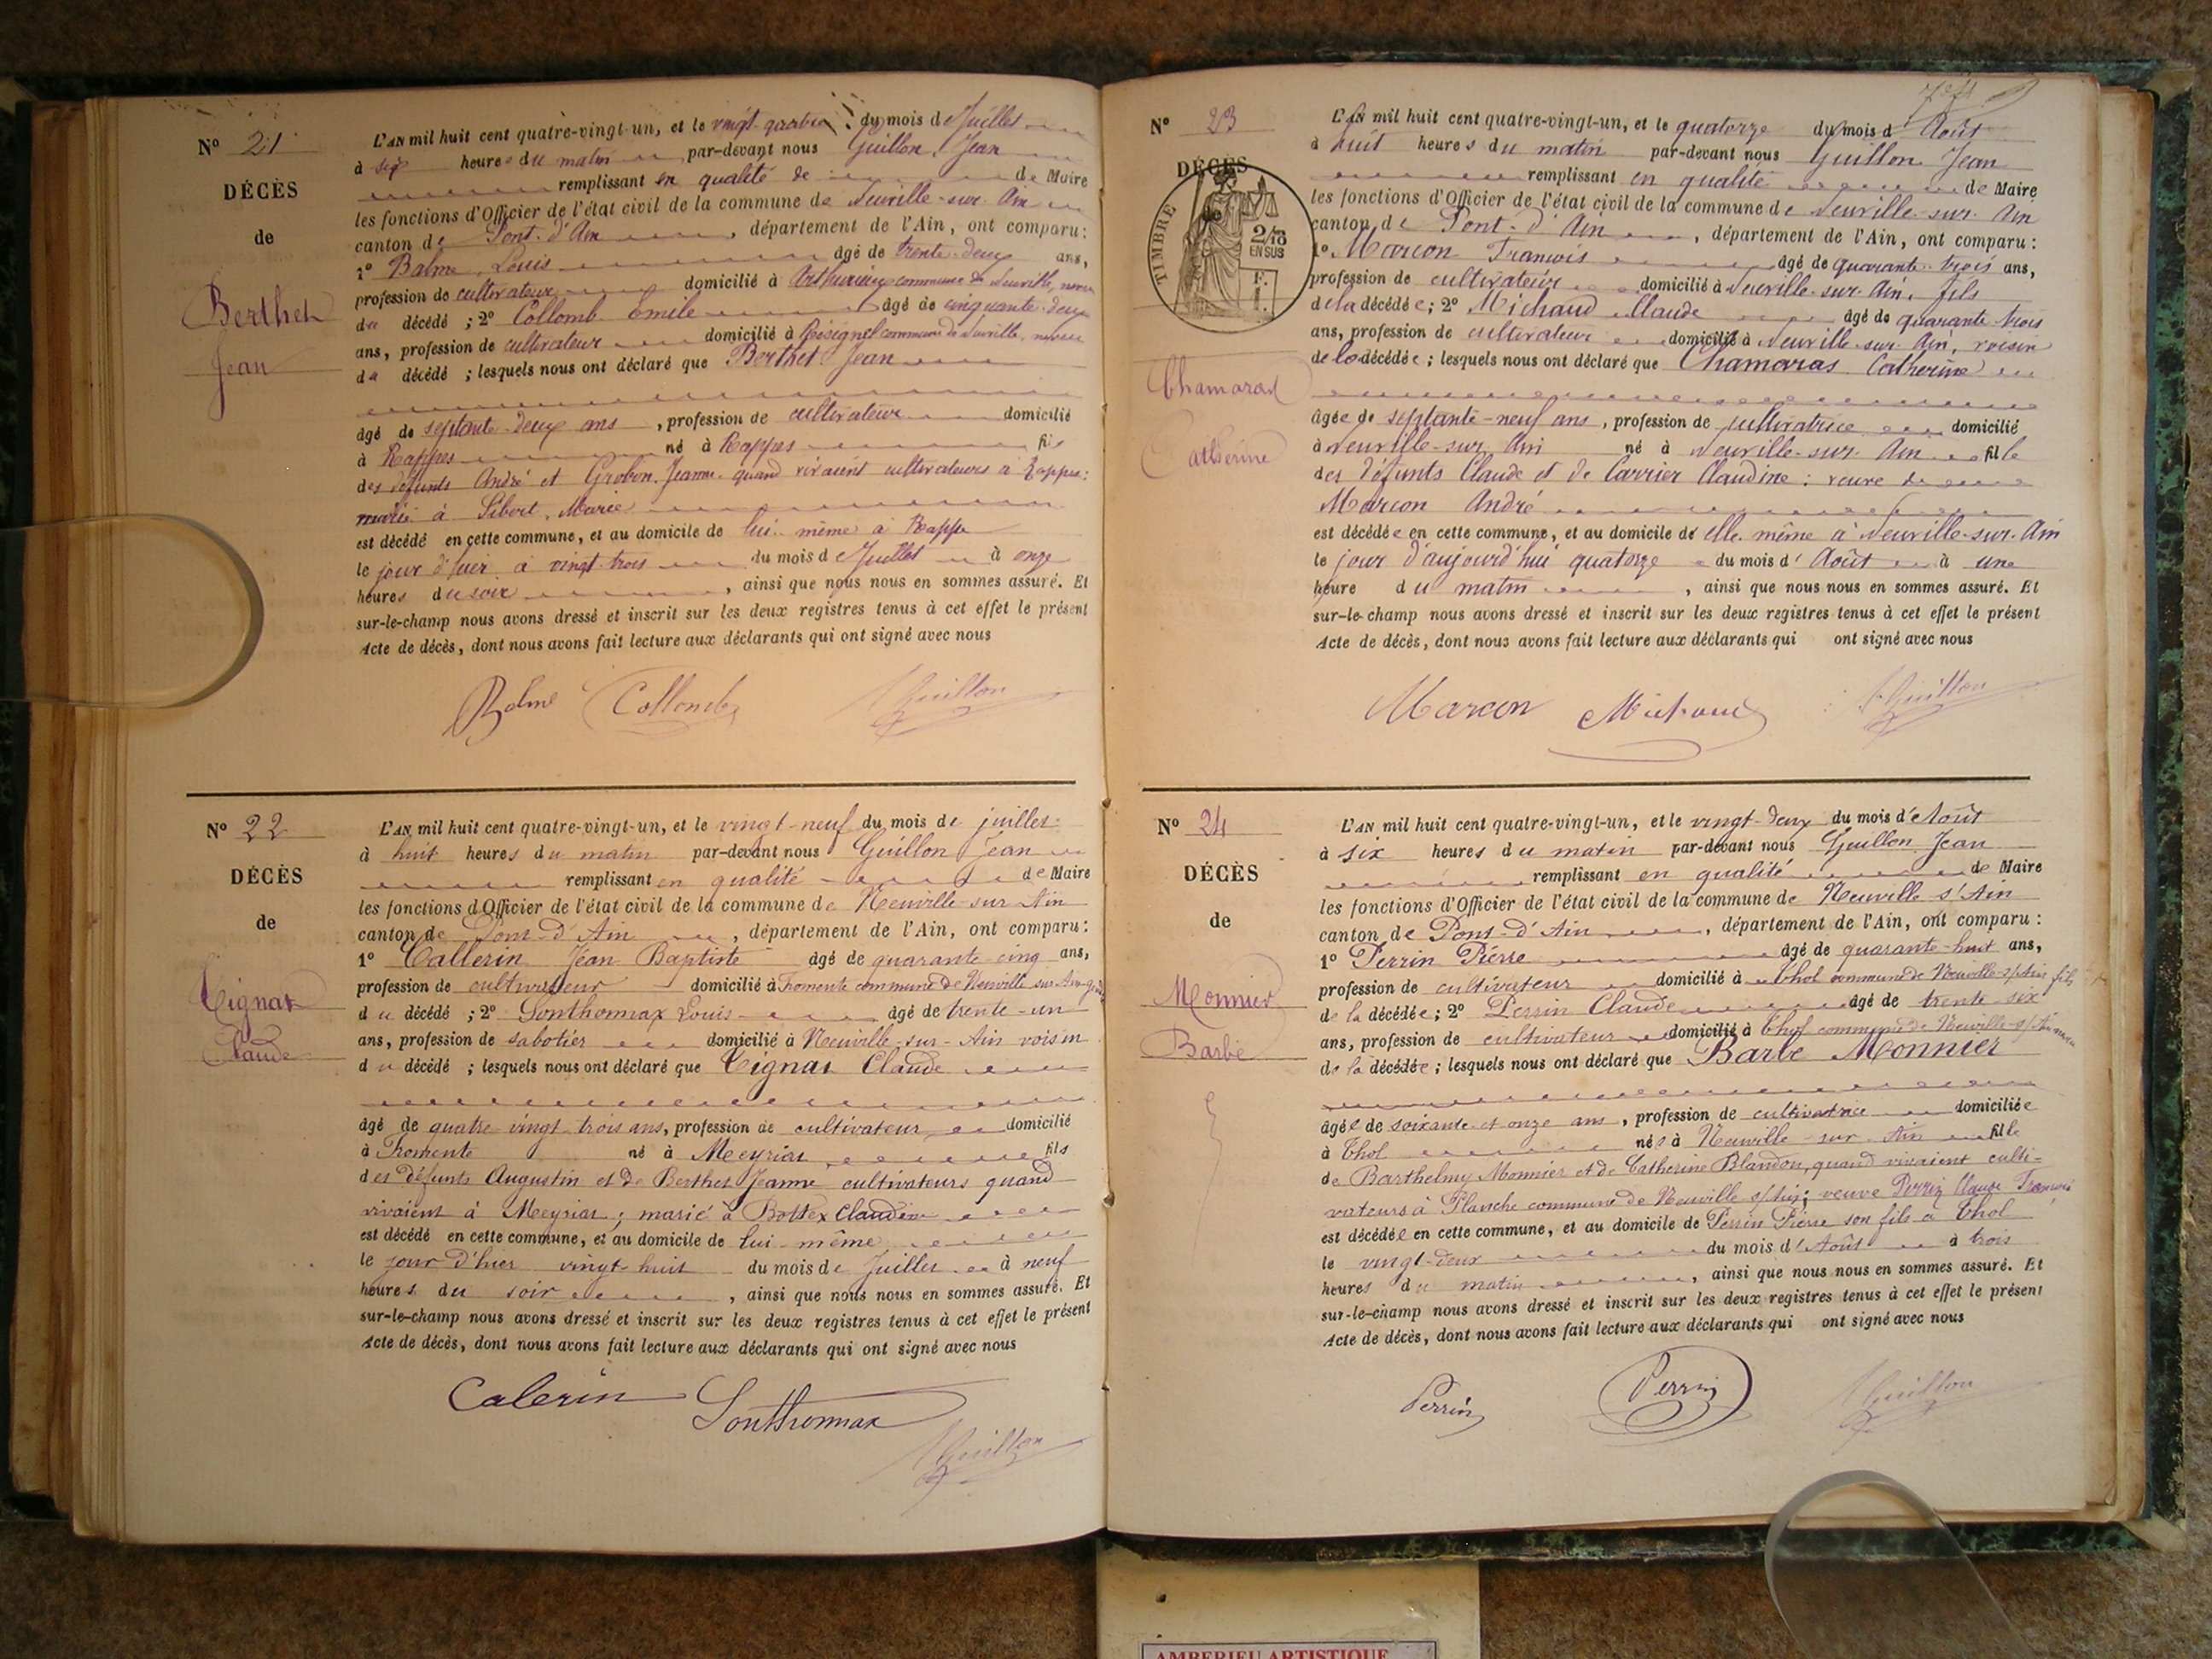 N° 21
DÉCÈS
de
Berthet
Jean
L'AN mil huit cent quatre-vingt-un, et le vingt-quatre du mois de Juillet
à six heures du matin par-devant nous Guillon Jean
remplissant en qualité de de Maire
les fonctions d'Officier de l'état civil de la commune de Neuville-sur-Ain
canton de Pont-d'Ain, département de l'Ain, ont comparu:
1° Balme Louis âgé de trente-deux ans,
profession de cultivateur domicilié à commune de Neuville, neveu
du décédé ; 2° Collomb Emile âgé de cinquante-deux
ans, profession de cultivateur domicilié à Résignel commune de Neuville, neveu
du décédé ; lesquels nous ont déclaré que Berthet Jean
âgé de septante-deux ans, profession de cultivateur domicilié
à Rappes né à Rappes fils
des défunts André et Grobon Jeanne quand vivaient cultivateurs à Rappes;
marié à Sibert Marie
est décédé en cette commune, et au domicile de lui-même à Rappe
le jour d'hier à vingt-trois du mois de Juillet à onze
heures du soir, ainsi que nous nous en sommes assuré. Et
sur-le-champ nous avons dressé et inscrit sur les deux registres tenus à cet effet le présent
Acte de décès, dont nous avons fait lecture aux déclarants qui ont signé avec nous
Balme Collomb Guillon
N° 22
DÉCÈS
de
Tignat
Claude
L'AN mil huit cent quatre-vingt-un, et le vingt-neuf du mois de juillet
à huit heures du matin par-devant nous Guillon Jean
remplissant en qualité de Maire
les fonctions d'Officier de l'état civil de la commune de Neuville-sur-Ain
canton de Pont-d'Ain, département de l'Ain, ont comparu:
1° Callerin Jean Baptiste âgé de quarante cinq ans,
profession de cultivateur domicilié à Fromente commune de Neuville sur Ain
du décédé ; 2° Sonthonnax Louis âgé de trente-un
ans, profession de sabotier domicilié à Neuville-sur-Ain voisin
du décédé ; lesquels nous ont déclaré que Tignat Claude
âgé de quatre-vingt trois ans, profession de cultivateur domicilié
à Fromente né à Meyriat fils
des défunts Augustin et de Berthet Jeanne cultivateurs quand
vivaient à Meyriat; marié à Bottex Claudine
est décédé en cette commune, et au domicile de lui-même
le jour d'hier vingt-huit du mois de Juillet à neuf
heures du soir, ainsi que nous nous en sommes assuré. Et
sur-le-champ nous avons dressé et inscrit sur les deux registres tenus à cet effet le présent
Acte de décès, dont nous avons fait lecture aux déclarants qui ont signé avec nous
Calerin Sonthonnax
Guillon
N° 23
DÉCÈS
de
TIMBRE
2/10
EN SUS
F.
Chamaras
Catherine
L'AN mil huit cent quatre-vingt-un, et le quatorze du mois d'Août
à huit heures du matin par-devant nous Guillon Jean
remplissant en qualité de Maire
les fonctions d'Officier de l'état civil de la commune de Neuville-sur-Ain
canton de Pont-d'Ain, département de l'Ain, ont comparu:
1° Marcon François âgé de quarante-trois ans,
profession de cultivateur domicilié à Neuville-sur-Ain, fils
de la décédée; 2° Michaud Claude âgé de quarante-trois
ans, profession de cultivateur domicilié à Neuville-sur-Ain, voisin
de la décédée; lesquels nous ont déclaré que Chamaras Catherine
âgée de septante-neuf ans, profession de cultivatrice domicilié
à Neuville-sur-Ain né à Neuville-sur-Ain fille
des défunts Claude et de Carrier Claudine; veuve de
Marcon André
est décédée en cette commune, et au domicile de elle même à Neuville-sur-Ain
le jour d'aujourd'hui quatorze du mois d'Août à une
heure du matin, ainsi que nous nous en sommes assuré. Et
sur-le-champ nous avons dressé et inscrit sur les deux registres tenus à cet effet le présent
Acte de décès, dont nous avons fait lecture aux déclarants qui ont signé avec nous
Marcon Michaud Guillon
N° 24
DÉCÈS
de
Monnier
Barbe
L'AN mil huit cent quatre-vingt-un, et le vingt-deux du mois d'Août
à six heures du matin par-devant nous Guillon Jean
remplissant en qualité de Maire
les fonctions d'Officier de l'état civil de la commune de Neuville s/ Ain
canton de Pont-d'Ain, département de l'Ain, ont comparu:
1° Perrin Pierre âgé de quarante-huit ans,
profession de cultivateur domicilié à Thol commune de Neuville-s/Ain fils
de la décédée; 2° Perrin Claude âgé de trente-six
ans, profession de cultivateur domicilié à Thol commune de Neuville-s/Ain neveu
de la décédée; lesquels nous ont déclaré que Barbe Monnier
âgée de soixante et onze ans, profession de cultivatrice domiciliée
à Thol née à Neuville-sur-Ain fille
de Barthelmy Monnier et de Catherine Blandon, quand vivaient culti-
vateurs à Planche commune de Neuville s/Ain; veuve Perrin Claude François
est décédée en cette commune, et au domicile de Perrin Pierre son fils à Thol
le vingt-deux du mois d'Août à trois
heures du matin, ainsi que nous nous en sommes assuré. Et
sur-le-champ nous avons dressé et inscrit sur les deux registres tenus à cet effet le présent
Acte de décès, dont nous avons fait lecture aux déclarants qui ont signé avec nous
Perrin Perrin Guillon
AMBERIEU ARTISTIQUE